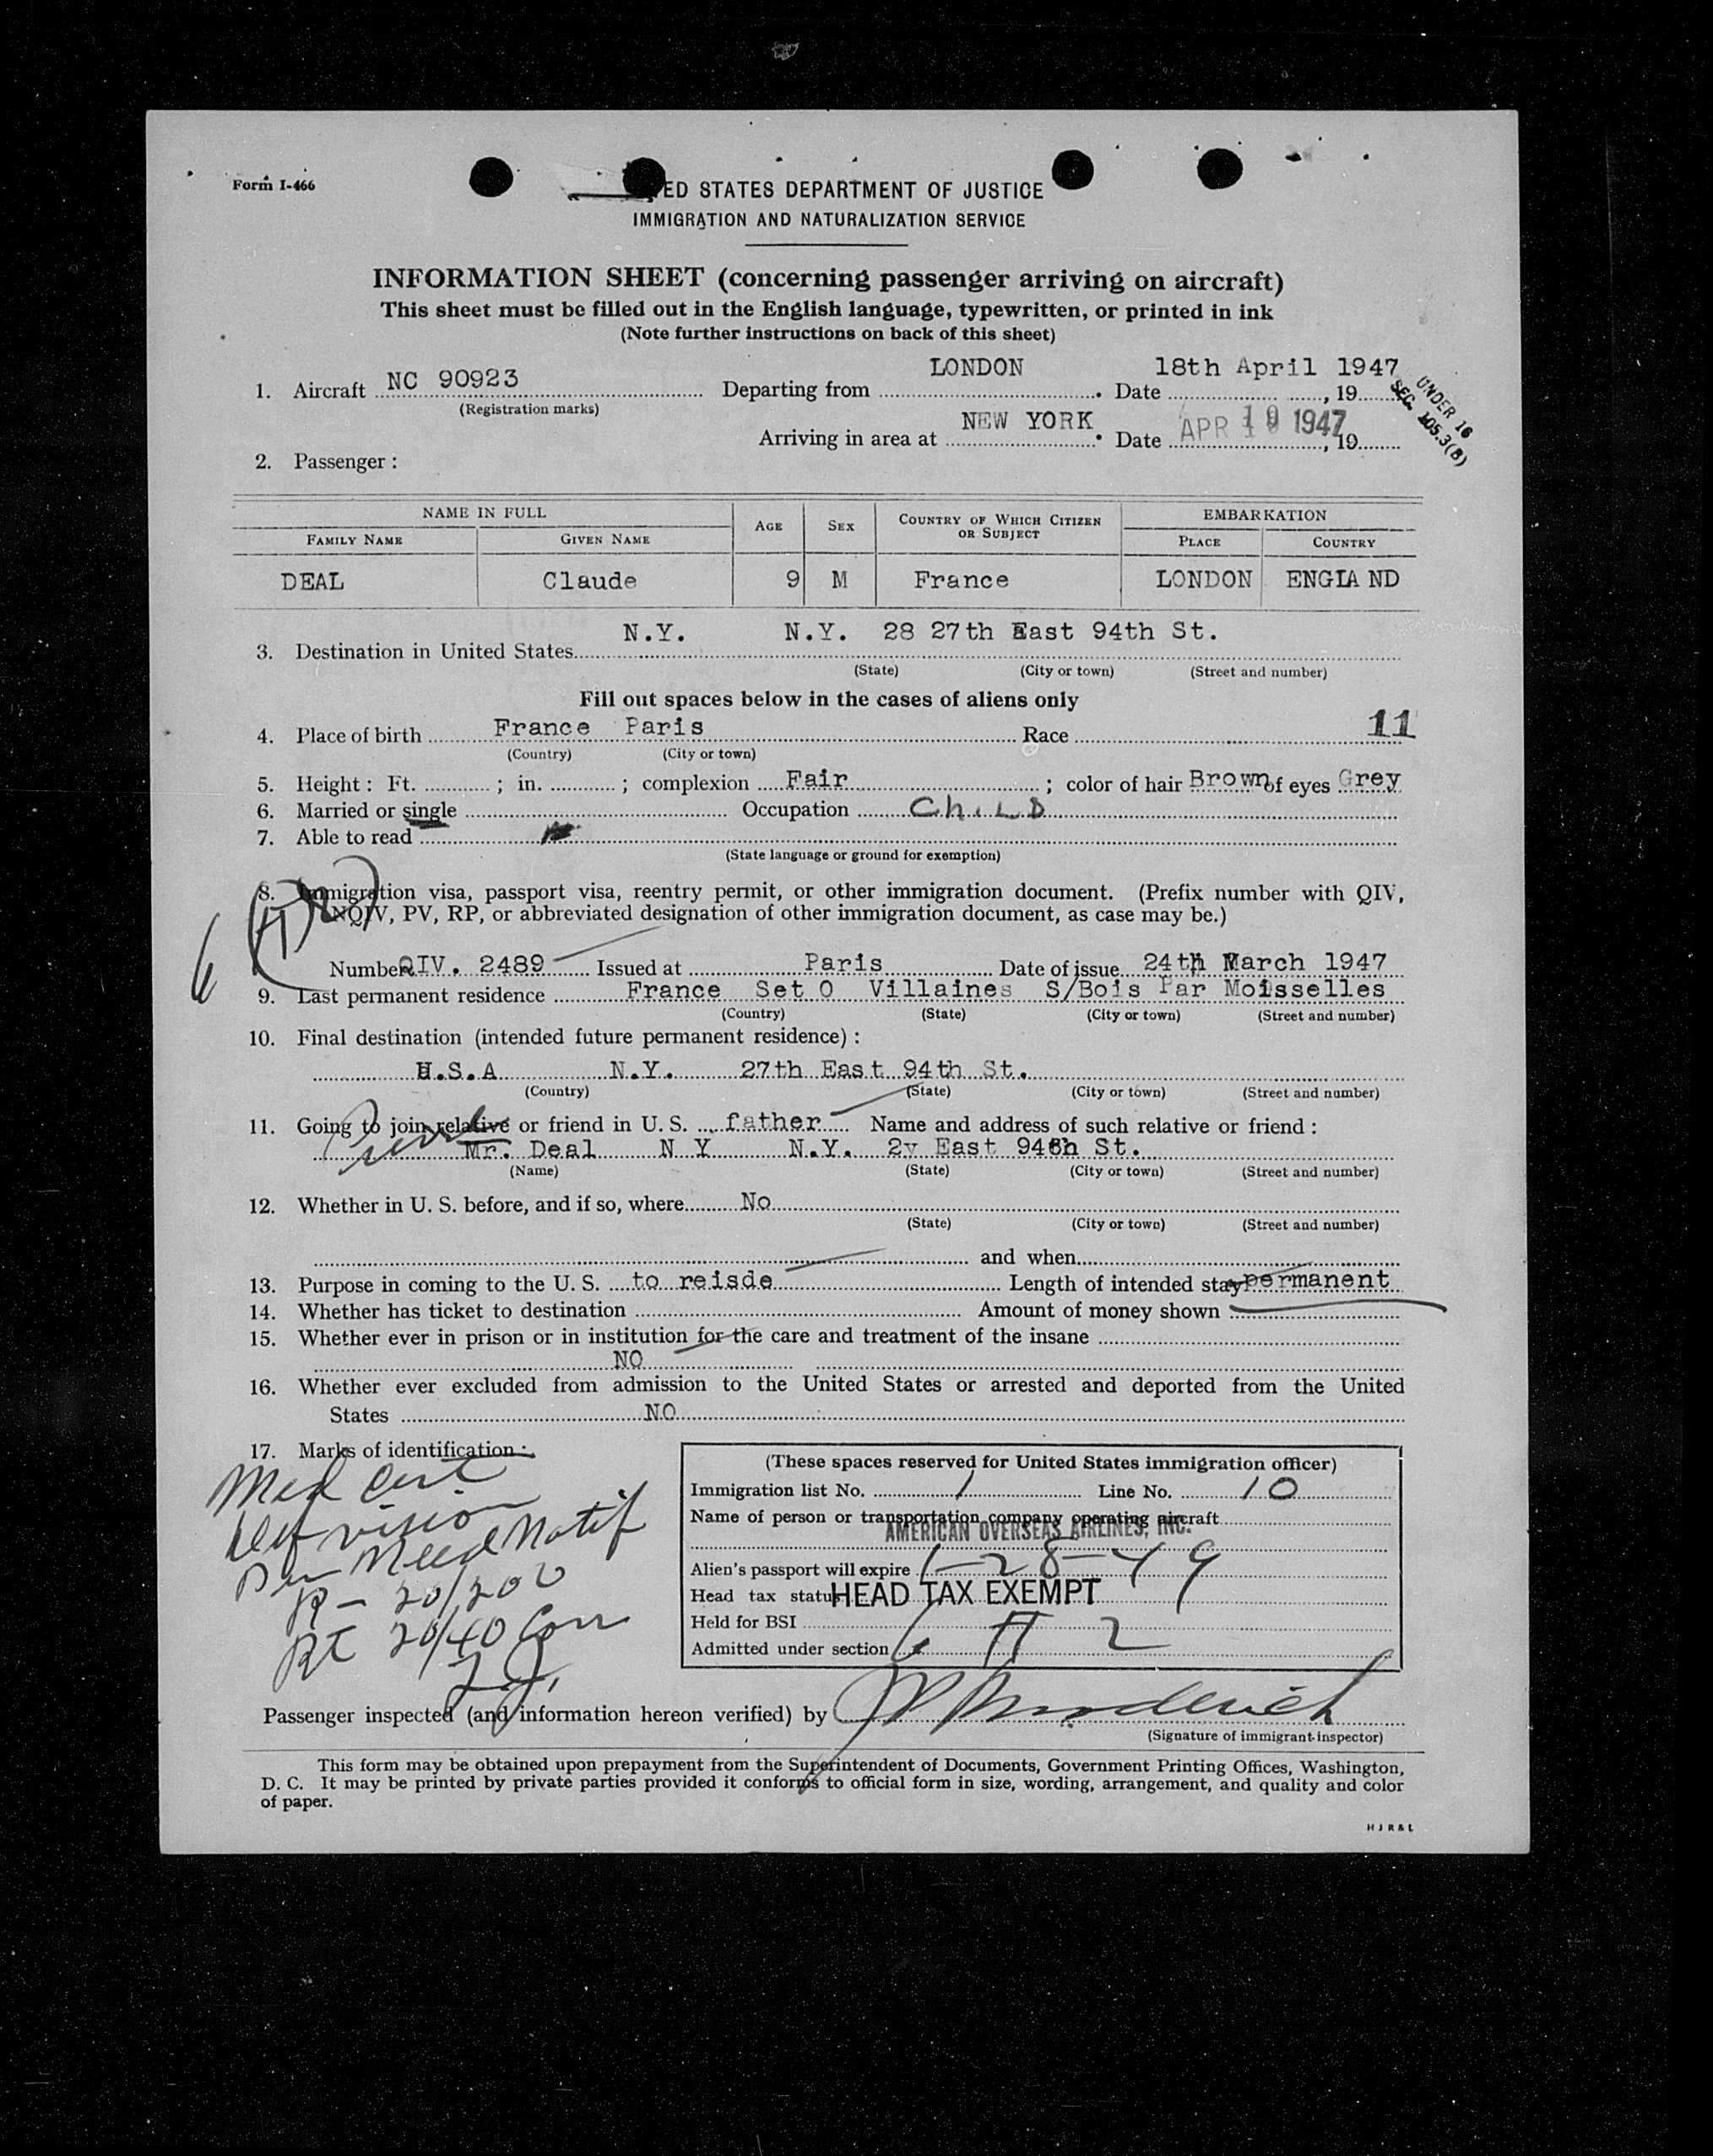 Form I-466
ED STATES DEPARTMENT OF JUSTICE
IMMIGRATION AND NATURALIZATION SERVICE
INFORMATION SHEET (concerning passenger arriving on aircraft)
This sheet must be filled out in the English language, typewritten, or printed in ink
(Note further instructions on back of this sheet)
1. Aircraft NC 90923 Departing from LONDON. Date 18th April 1947, 19
(Registration marks)
UNDER 16
SEC. 105.3(B)
Arriving in area at NEW YORK. Date APR 19 1947, 19
2. Passenger:
NAME IN FULL AGE SEX COUNTRY OF WHICH CITIZEN OR SUBJECT EMBARKATION
FAMILY NAME GIVEN NAME PLACE COUNTRY
DEAL Claude 9 M France LONDON ENGLA ND
3. Destination in United States N.Y. N.Y. 28 27th East 94th St.
(State) (City or town) (Street and number)
Fill out spaces below in the cases of aliens only
4. Place of birth France Paris Race 11
(Country) (City or town)
5. Height: Ft. ; in. ; complexion Fair ; color of hair Brown of eyes Grey
6. Married or single Occupation ChiLD
7. Able to read
(State language or ground for exemption)
8. Immigration visa, passport visa, reentry permit, or other immigration document. (Prefix number with QIV,
NQIV, PV, RP, or abbreviated designation of other immigration document, as case may be.)
Number QIV. 2489 Issued at Paris Date of issue 24th March 1947
9. Last permanent residence France Set O Villaines S/Bois Par Moisselles
(Country) (State) (City or town) (Street and number)
10. Final destination (intended future permanent residence):
U.S.A N.Y. 27th East 94th St.
(Country) (State) (City or town) (Street and number)
11. Going to join relative or friend in U. S. father Name and address of such relative or friend:
Mr. Deal N Y N.Y. 2v East 94th St.
(Name) (State) (City or town) (Street and number)
12. Whether in U. S. before, and if so, where No
(State) (City or town) (Street and number)
and when
13. Purpose in coming to the U. S. to reisde Length of intended stay permanent
14. Whether has ticket to destination Amount of money shown
15. Whether ever in prison or in institution for the care and treatment of the insane
NO
16. Whether ever excluded from admission to the United States or arrested and deported from the United
States NO
17. Marks of identification:
Med cert
def vision
Med Notif
R- 20/200
20/40 Corr
(These spaces reserved for United States immigration officer)
Immigration list No. 1 Line No. 10
Name of person or transportation company operating aircraft
AMERICAN OVERSEAS AIRLINES, INC.
Alien's passport will expire 1-28-49
Head tax status HEAD TAX EXEMPT
Held for BSI
Admitted under section 6 A 2
Passenger inspected (and information hereon verified) by
(Signature of immigrant inspector)
This form may be obtained upon prepayment from the Superintendent of Documents, Government Printing Offices, Washington,
D. C. It may be printed by private parties provided it conforms to official form in size, wording, arrangement, and quality and color
of paper.
H J R & L